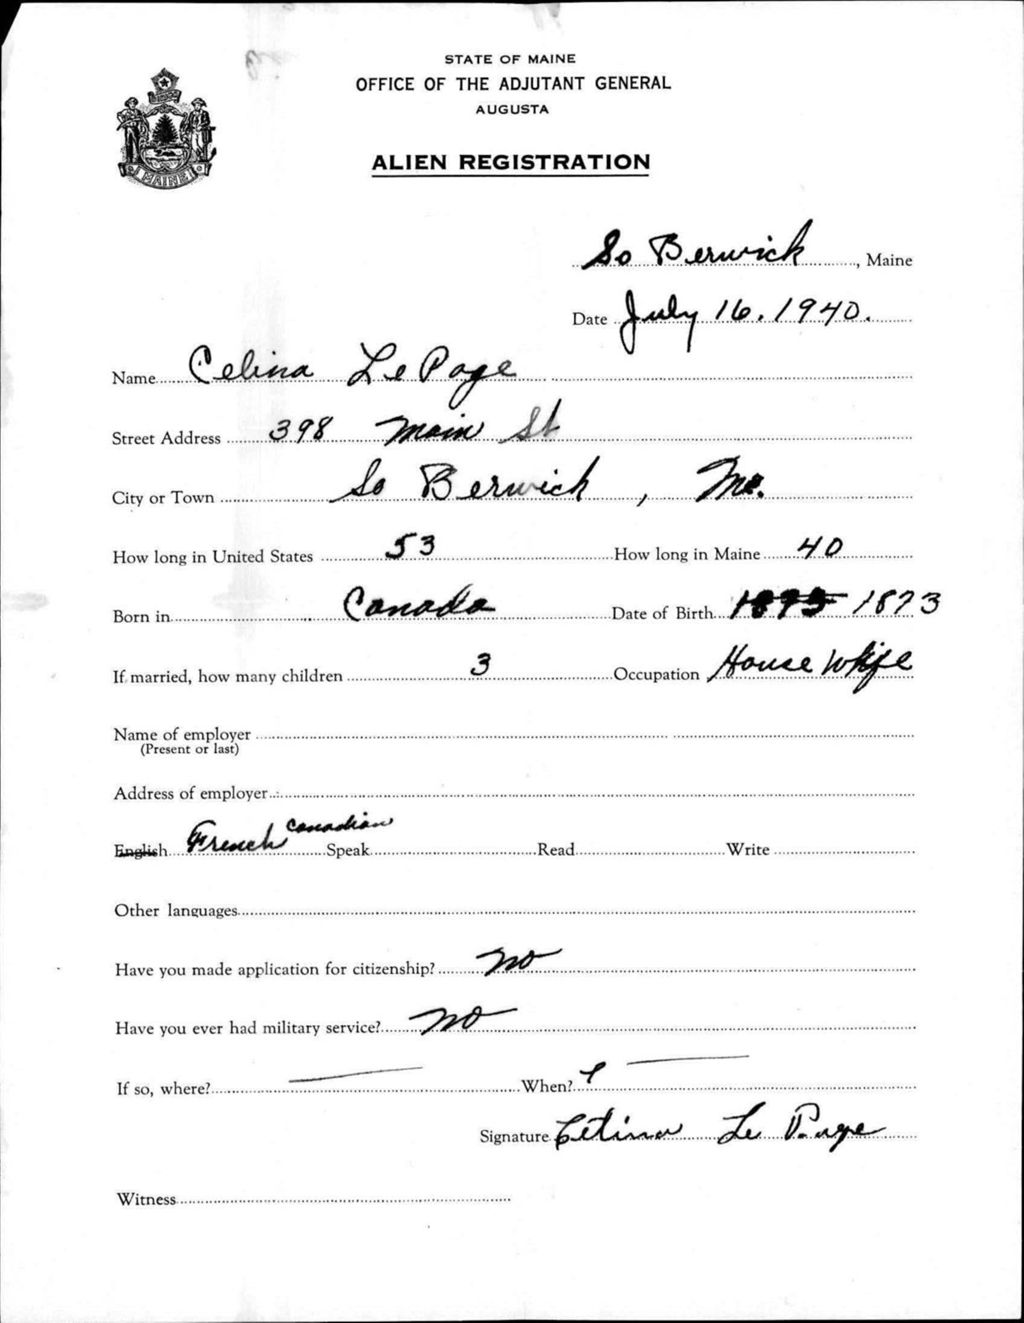 STATE OF MAINE
OFFICE OF THE ADJUTANT GENERAL
AUGUSTA
ALIEN REGISTRATION
MAINE
So Berwick, Maine
Date July 16, 1940.
Name Celina Le Page
Street Address 398 Main St
City or Town So Berwick, Me.
How long in United States 53 How long in Maine 40
Born in Canada Date of Birth 1873
If married, how many children 3 Occupation House Wife
Name of employer
(Present or last)
Address of employer
English French Canadian Speak Read Write
Other languages
Have you made application for citizenship? no
Have you ever had military service? no
If so, where? When?
Signature Celina Le Page
Witness